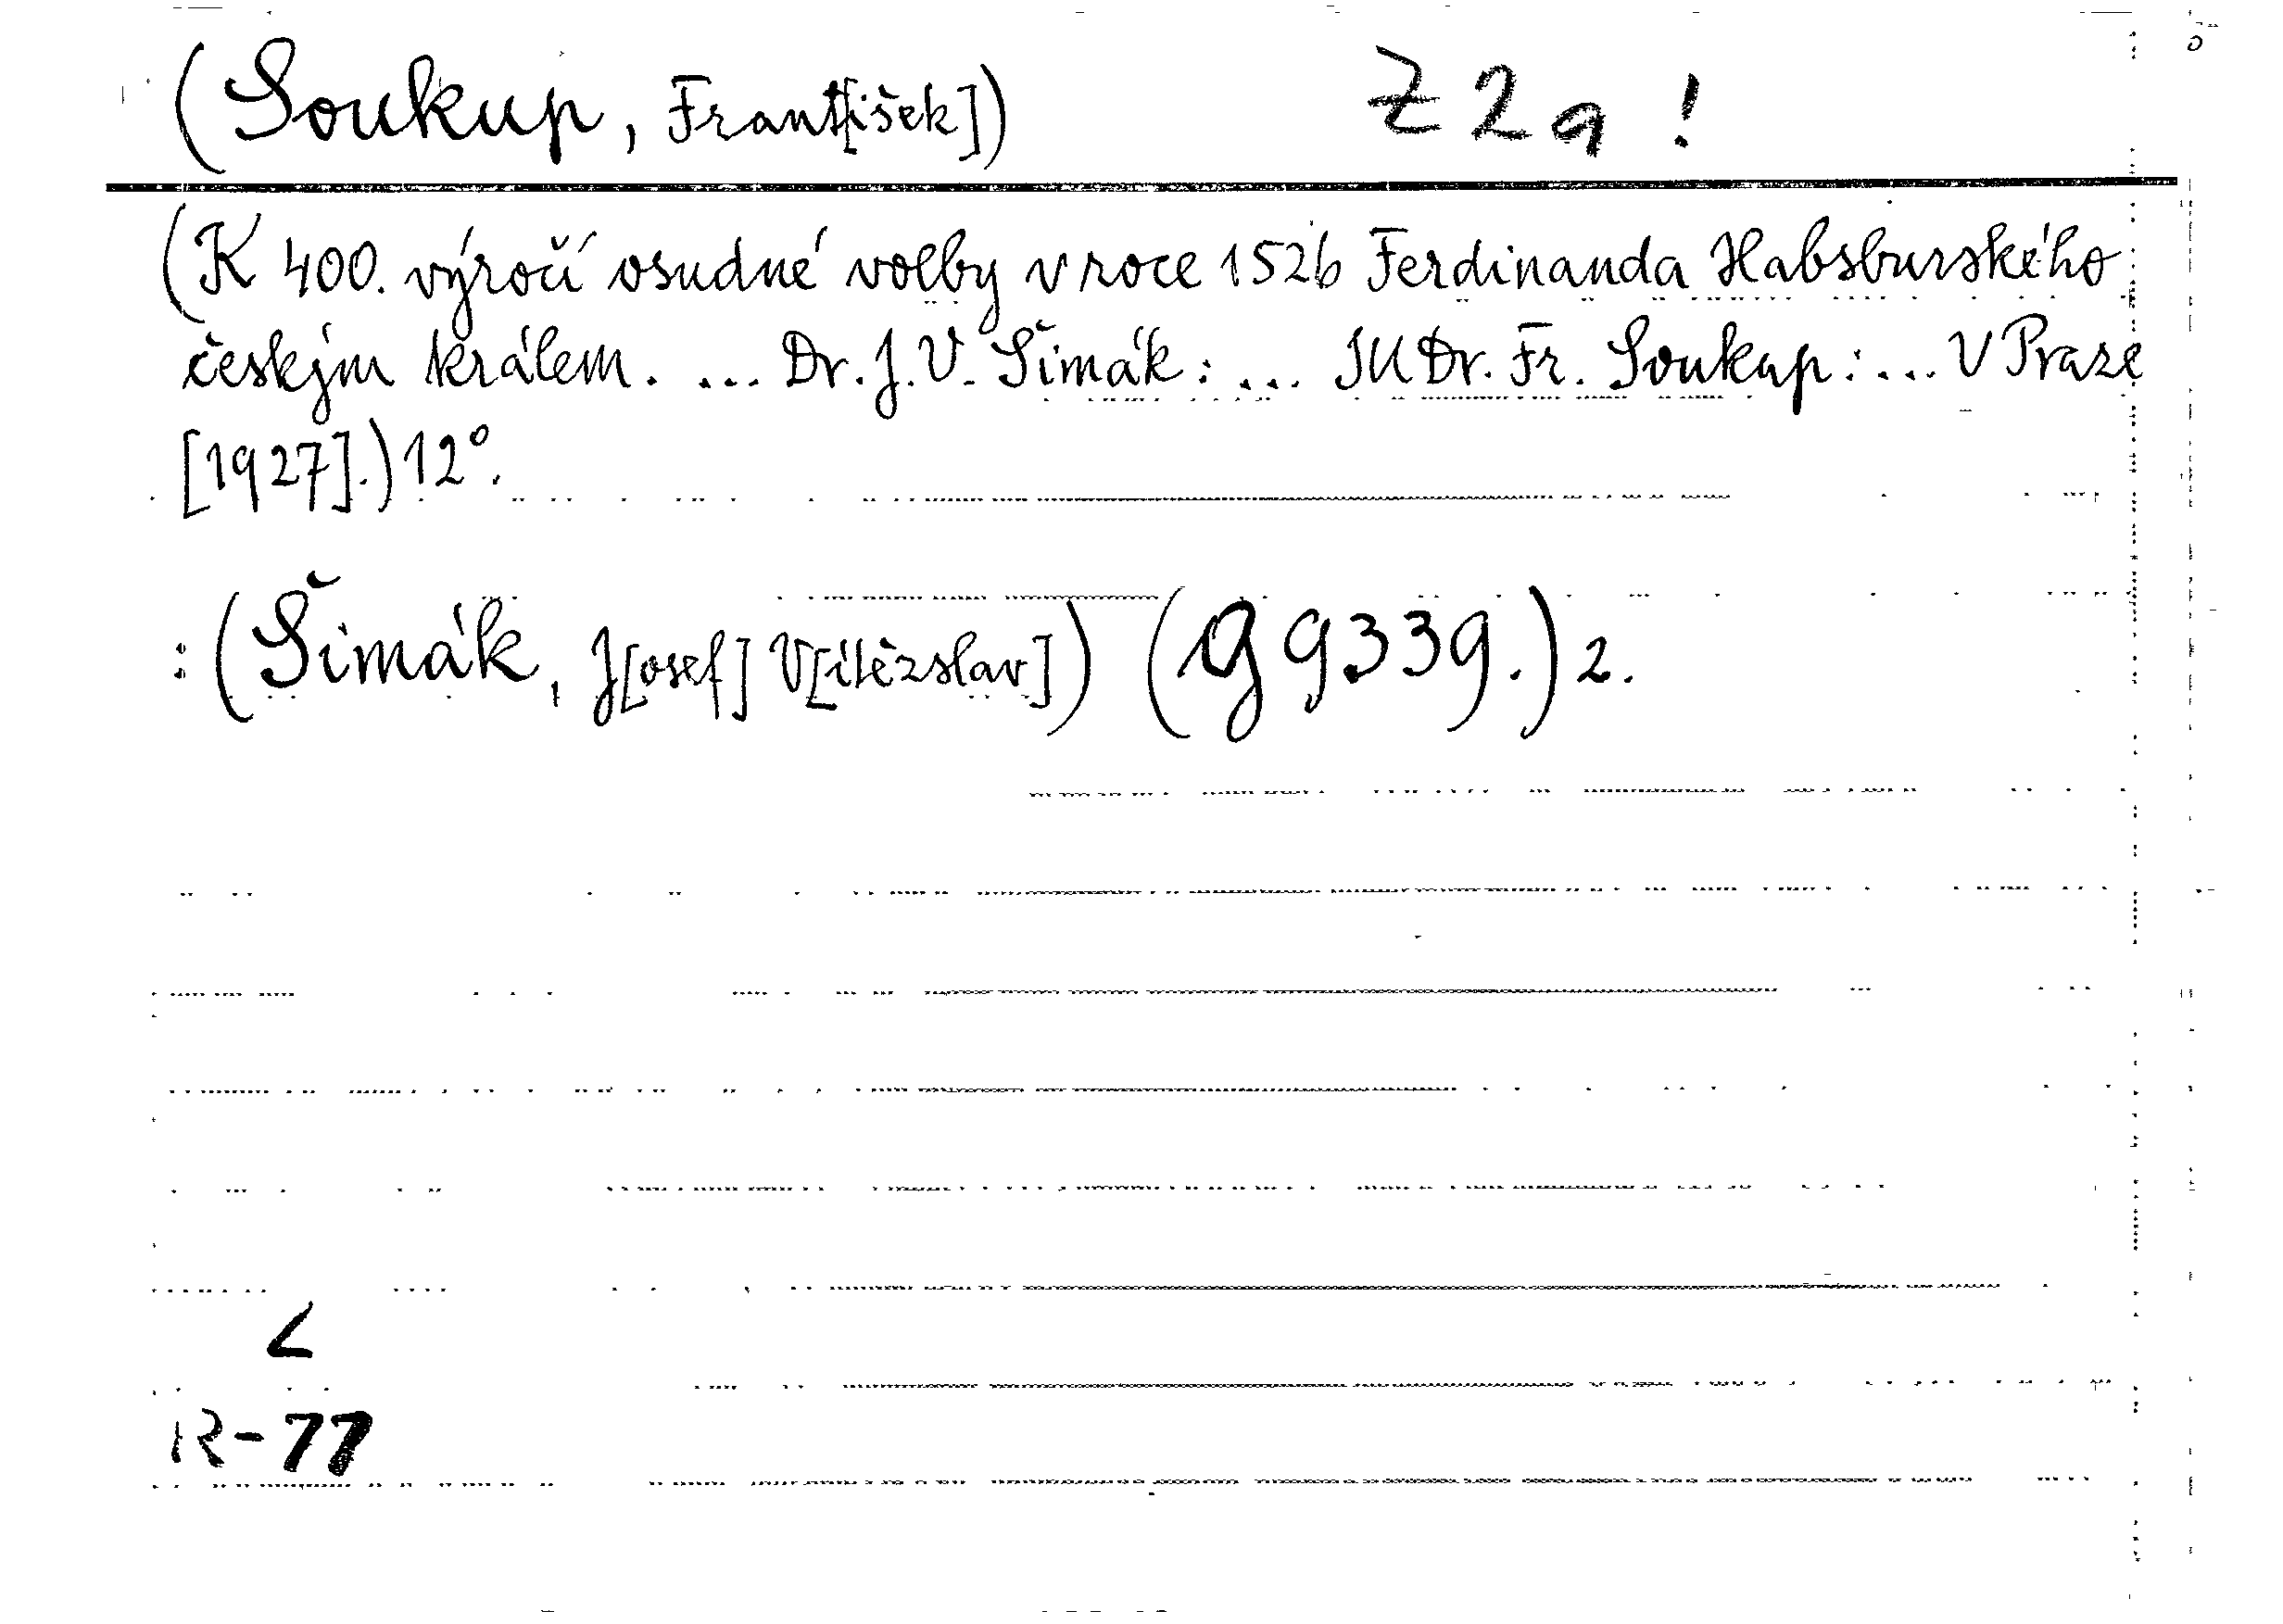 (Soukup, Frant[išek]) Z 2a !
(K 400. výročí osudné volby v roce 1526 Ferdinanda Habsburského
českým králem. ... Dr. J. V. Šimák: ... JUDr. Fr. Soukup: ... V Praze
[1927].) 12°.
: (Šimák, J[osef] V[ítězslav]) (G 9339.) 2.
<
R-77